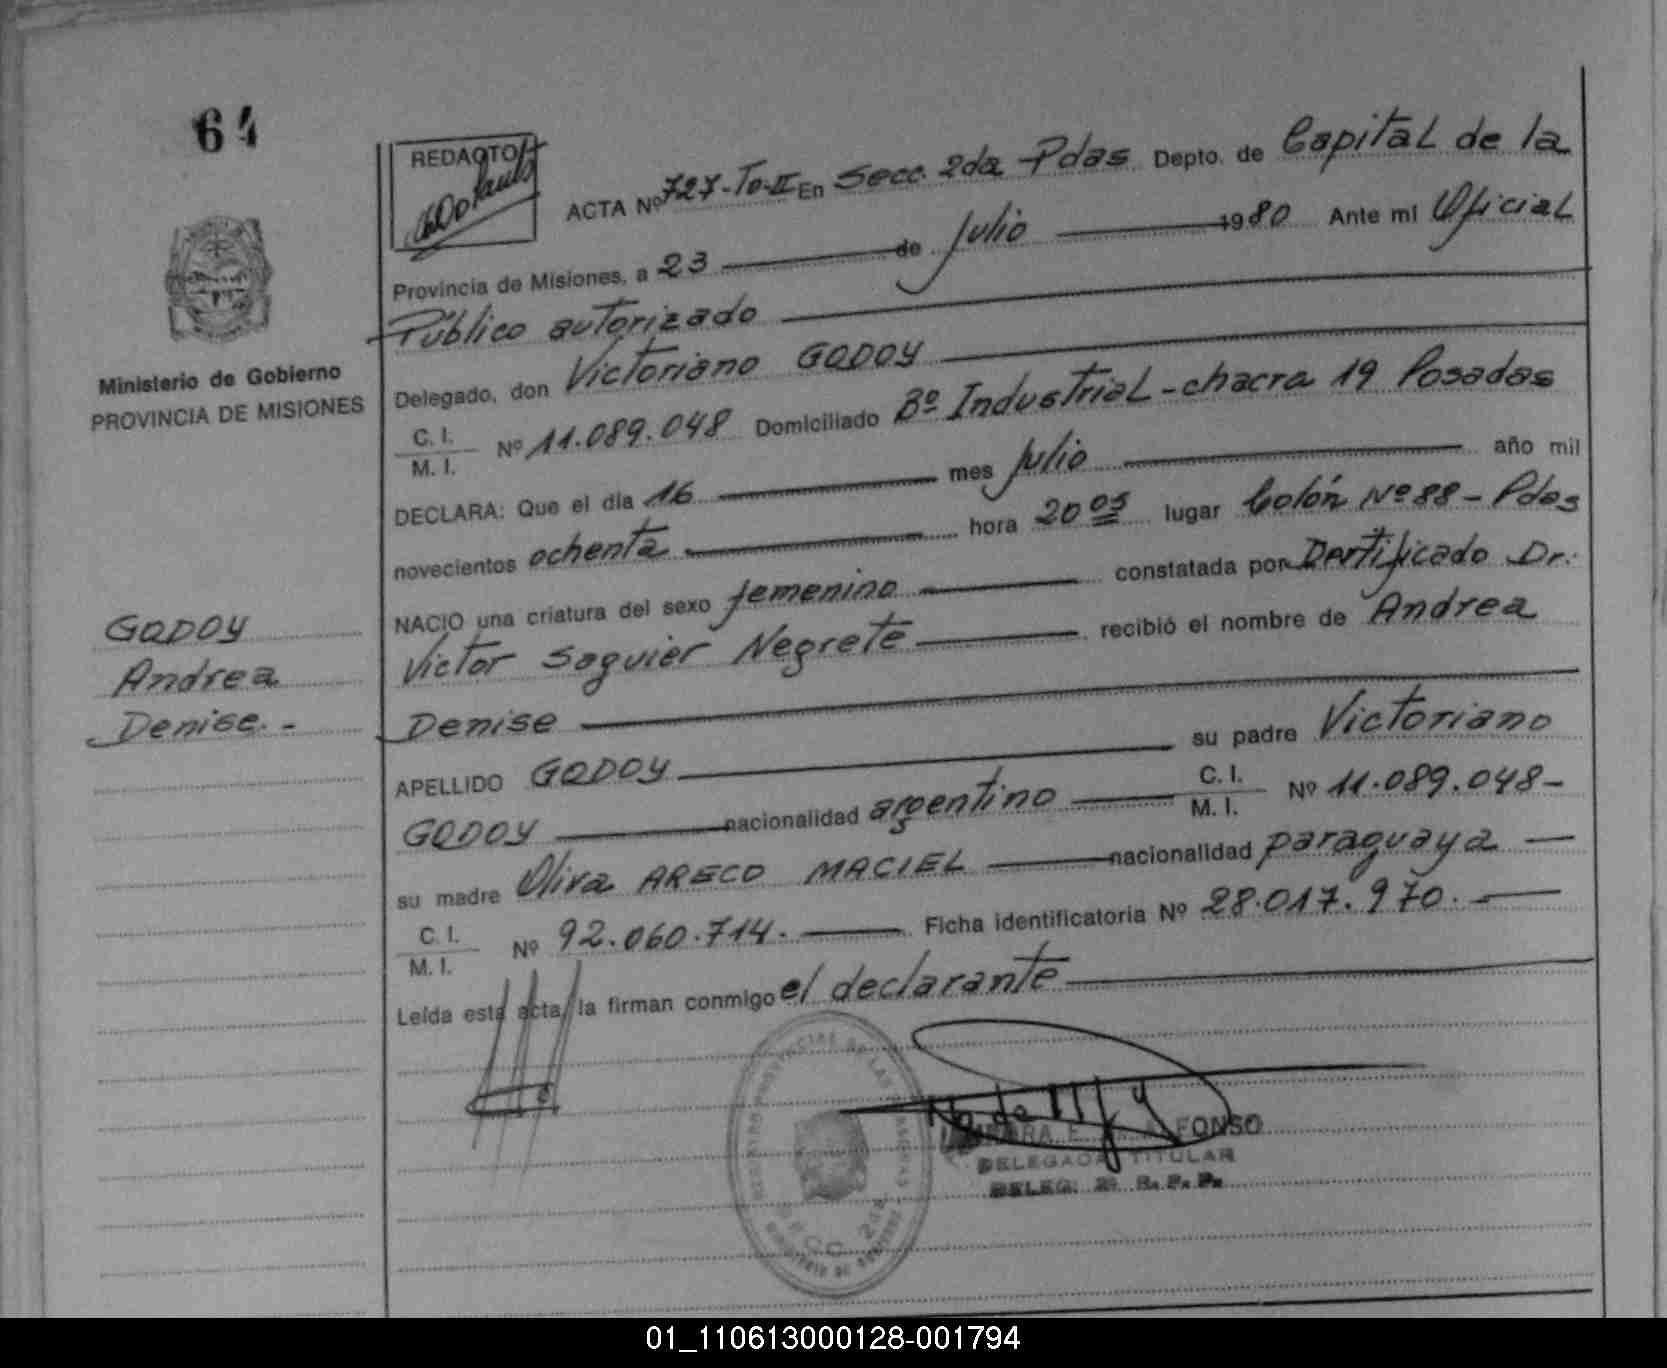 64
REDACTO
ACTA Nº 727-To-II En Secc. 2da Pdas Depto. de Capital de la
Provincia de Misiones, a 23 de Julio 1980 Ante mi Oficial
Público autorizado
Ministerio de Gobierno
PROVINCIA DE MISIONES
Delegado, don Victoriano GODOY
C. I.
M. I. Nº 11.089.048 Domiciliado Bº Industrial - chacra 19 Posadas
DECLARA: Que el día 16 mes Julio año mil
novecientos ochenta hora 20 05 lugar Colón Nº 88 - Pdas
NACIO una criatura del sexo femenino constatada por Certificado Dr.
Victor Saguier Negrete recibió el nombre de Andrea
Denise
GODOY
Andrea
Denise. -
APELLIDO GODOY su padre Victoriano
GODOY nacionalidad argentino C. I.
M. I. Nº 11.089.048-
su madre Oliva ARECO MACIEL nacionalidad paraguaya
C. I.
M. I. Nº 92.060.714. Ficha identificatoria Nº 28.017.970.
Leída esta acta, la firman conmigo el declarante
FONSO
DELEGADA TITULAR
01_110613000128-001794